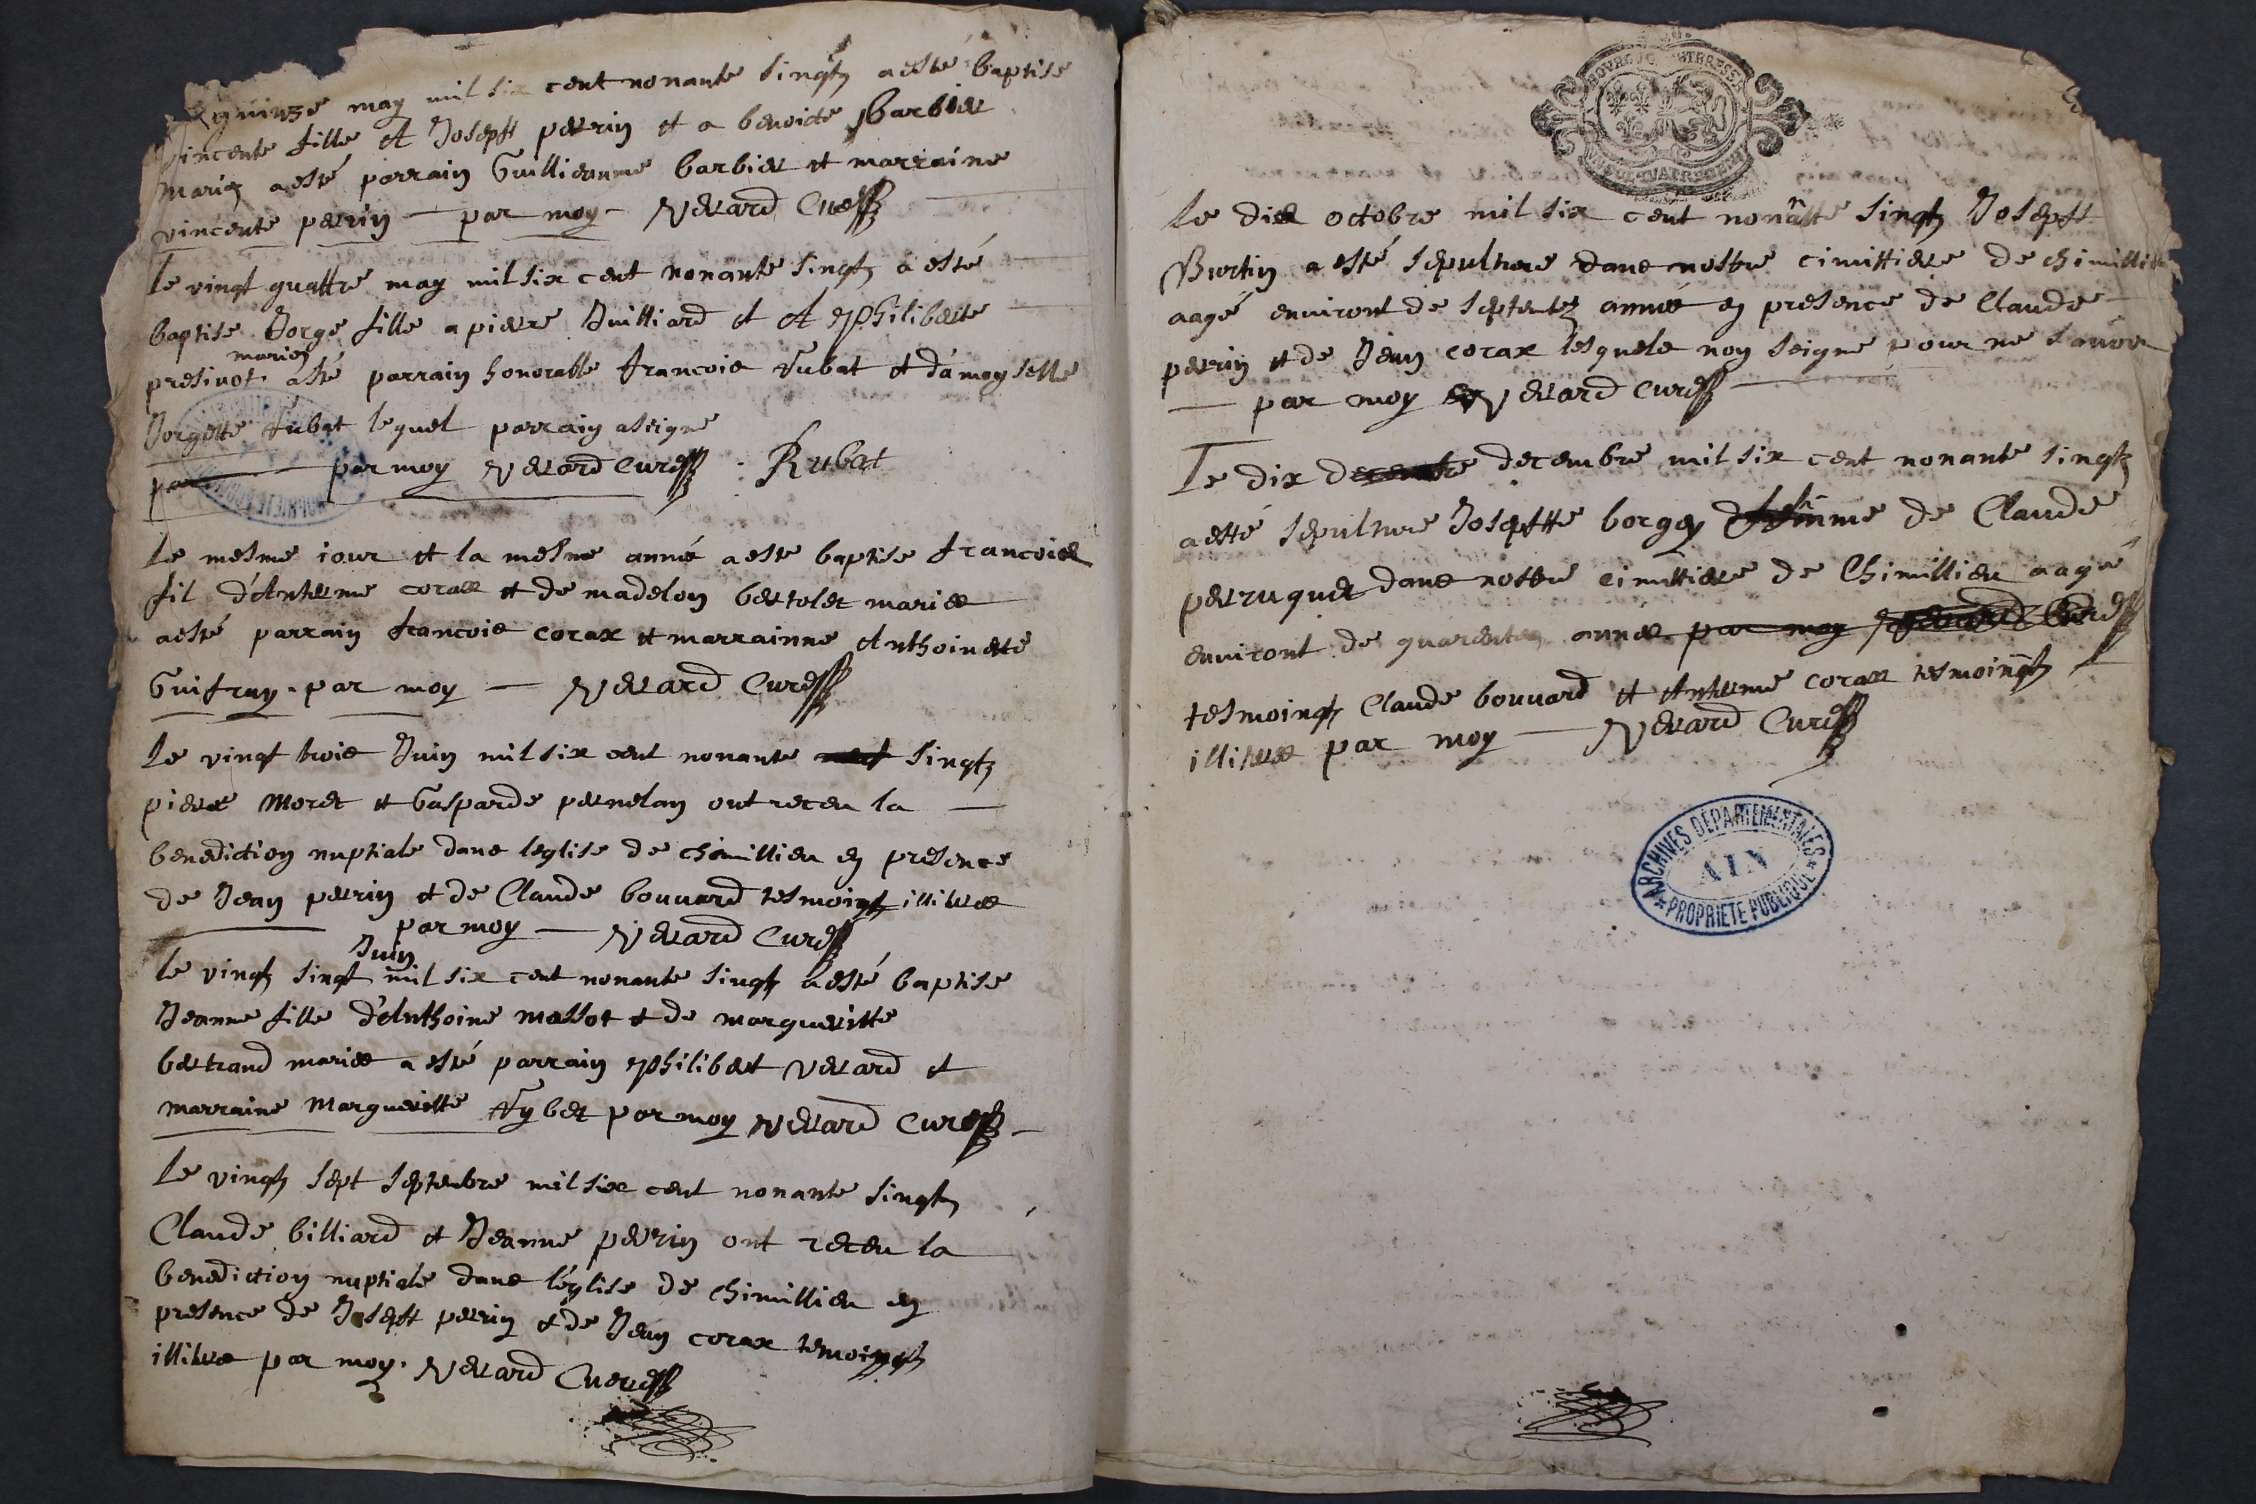 Le quinze may mil six cent nonante singtz a esté baptise
vincente fille A Joseptt perrin et a benoicte Barbier
mariez a esté parrain Guillieaume barbier et marraine
vincente perrin par moy Nerard Cure
Le vingt quattre may mil six cent nonante singtz a esté
baptise Jorge fille a pierre Juilliard et A philiberte
mariez
presivot a sté parrain honorable francois Rubat et damoyselle
Jorgette Rubat lequel parrain a signe
par moy Nerard Cure Rubat
Le mesme iour et la mesme anné a este baptise francoies
fil d'Anterme corax et de madelon bertolet maries
a esté parrain francois corax et marrainne Anthoinette
Guifray par moy Nerard Cure
Le vingt trois Juin mil six cent nonante singtz
pierre Moret et Gasparde pernelan ont receu la
benediction nuptiale dans leglise de chimillieu en presence
de Jean perrin et de Claude bouvard tesmoingtz illitres
par moy Nerard Cure
Juin
Le vingtz singt mil six cent nonante singtz a esté baptise
Jeanne fille d'Anthoine massot et de marguerite
bertrand maries a esté parrain philibert Nerard et
marraine Marguerite Rybet par moy Nerard Cure
Le vingtz sept septembre mil six cent nonante singtz
Claude billiard et Jeanne perrin ont receu la
benediction nuptiale dans l'église de chimillieu en
presence de Joseptt perrin et de Jean corax temoingtz
illitres par moy Nerard Cuere
Le dix octobre mil six cent nonantte singtz Joseptt
Burtin a esté sepulture dans nostre cimittiere de chimillieu
aagé environt de septente année en presence de Claude
perrin et de Jean corax lesquels non seigne pour ne savoir
par moy Nerard Cure
Le dix decembre mil six cent nonante singtz
a esté sepulture Joseptte borgey femme de Claude
perruquet dans nostre cimittiere de Chimillieu aagé
environt de quarente années
tesmoingtz Claude bouvard et Anterme corax tesmoingtz
illitres par moy Nerard Cure
ARCHIVES DEPARTEMENTALES
AIN
PROPRIETE PUBLIQUE